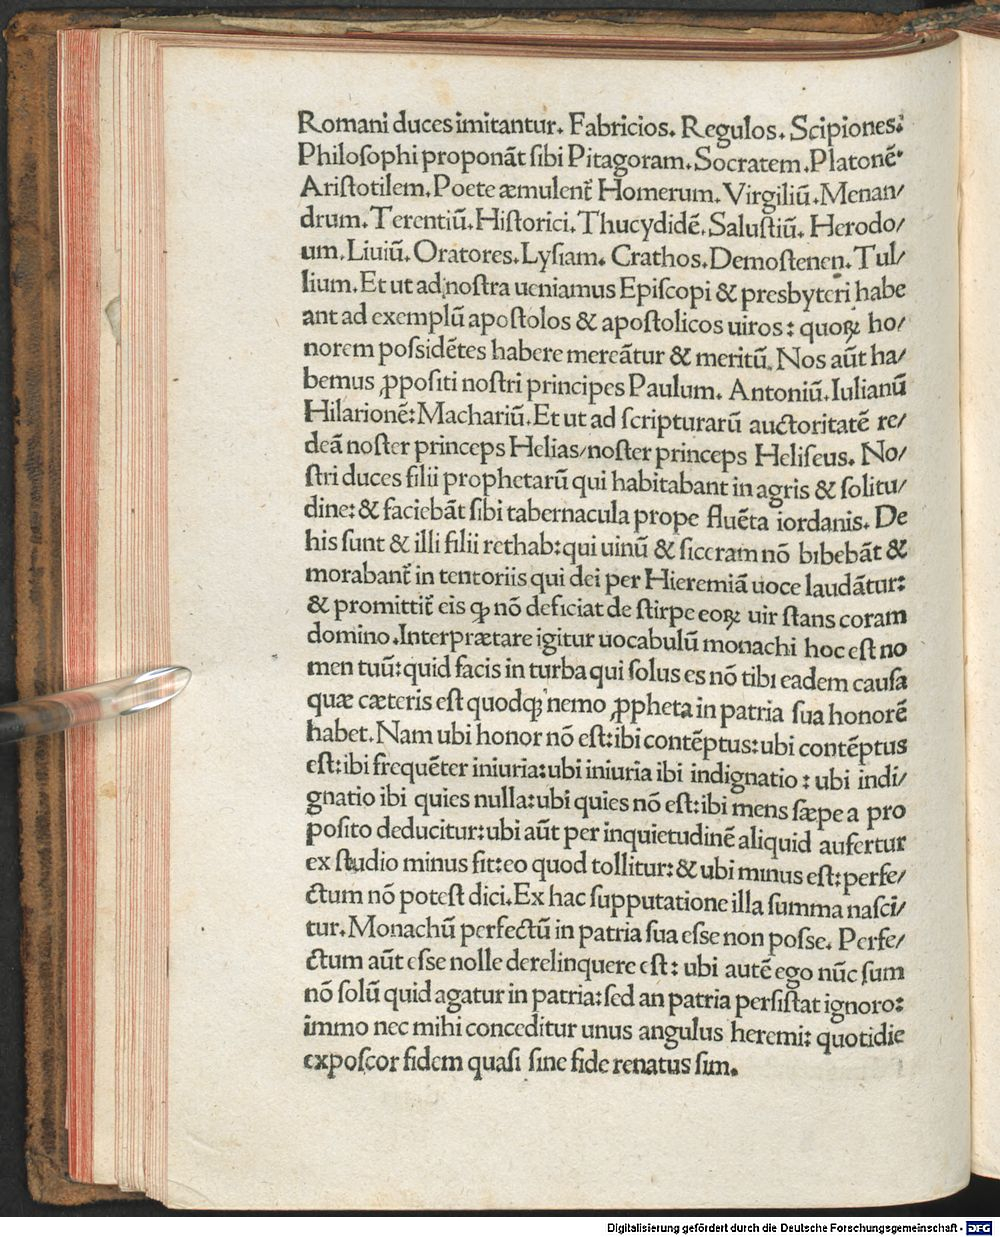 Romani duces imitantur. Fabricios. Regulos. Scipiones:
Philoſophi proponāt ſibi Pitagoram. Socratem. Platonē.
Ariſtotilem. Poete æmulent̄ Homerum. Virgiliū. Menan/
drum. Terentiū. Hiſtorici. Thucydidē. Saluſtiū. Herodo/
um. Liuiū. Oratores. Lyſiam. Crathos. Demoſtenen. Tul/
lium. Et ut ad noſtra ueniamus Epiſcopi & presbyteri habe
ant ad exemplū apoſtolos & apoſtolicos uiros: quoꝝ ho/
norem poſſidētes habere mereātur & meritū. Nos aūt ha/
bemus ꝓpoſiti noſtri principes Paulum. Antoniū. Iulianū
Hilarionē: Machariū. Et ut ad ſcripturarū auctoritatē re/
deā noſter princeps Helias/noſter princeps Heliſeus. No/
ſtri duces filii prophetarū qui habitabant in agris & ſolitu/
dine: & faciebāt ſibi tabernacula prope fluēta iordanis. De
his ſunt & illi filii rethab: qui uinū & ſiceram nō bibebāt &
morabant̄ in tentoriis qui dei per Hieremiā uoce laudātur:
& promittit̄ eis ꝙ nō deficiat de ſtirpe eoꝝ uir ſtans coram
domino. Interprætare igitur uocabulū monachi hoc eſt no
men tuū: quid facis in turba qui ſolus es nō tibi eadem cauſa
quæ cæteris eſt quodqꝫ nemo ꝓpheta in patria ſua honorē
habet. Nam ubi honor nō eſt: ibi contēptus: ubi contēptus
eſt: ibi frequēter iniuria: ubi iniuria ibi indignatio: ubi indi/
gnatio ibi quies nulla: ubi quies nō eſt: ibi mens ſæpe a pro
poſito deducitur: ubi aūt per inquietudinē aliquid aufertur
ex ſtudio minus fit: eo quod tollitur: & ubi minus eſt: perfe/
ctum nō poteſt dici. Ex hac ſupputatione illa ſumma naſci/
tur. Monachū perfectū in patria ſua eſſe non poſſe. Perfe/
ctum aūt eſſe nolle derelinquere eſt: ubi autē ego nūc ſum
nō ſolū quid agatur in patria: ſed an patria perſiſtat ignoro:
immo nec mihi conceditur unus angulus heremi: quotidie
expoſcor fidem quaſi ſine fide renatus ſim.
Digitalisierung gefördert durch die Deutsche Forschungsgemeinschaft - DFG